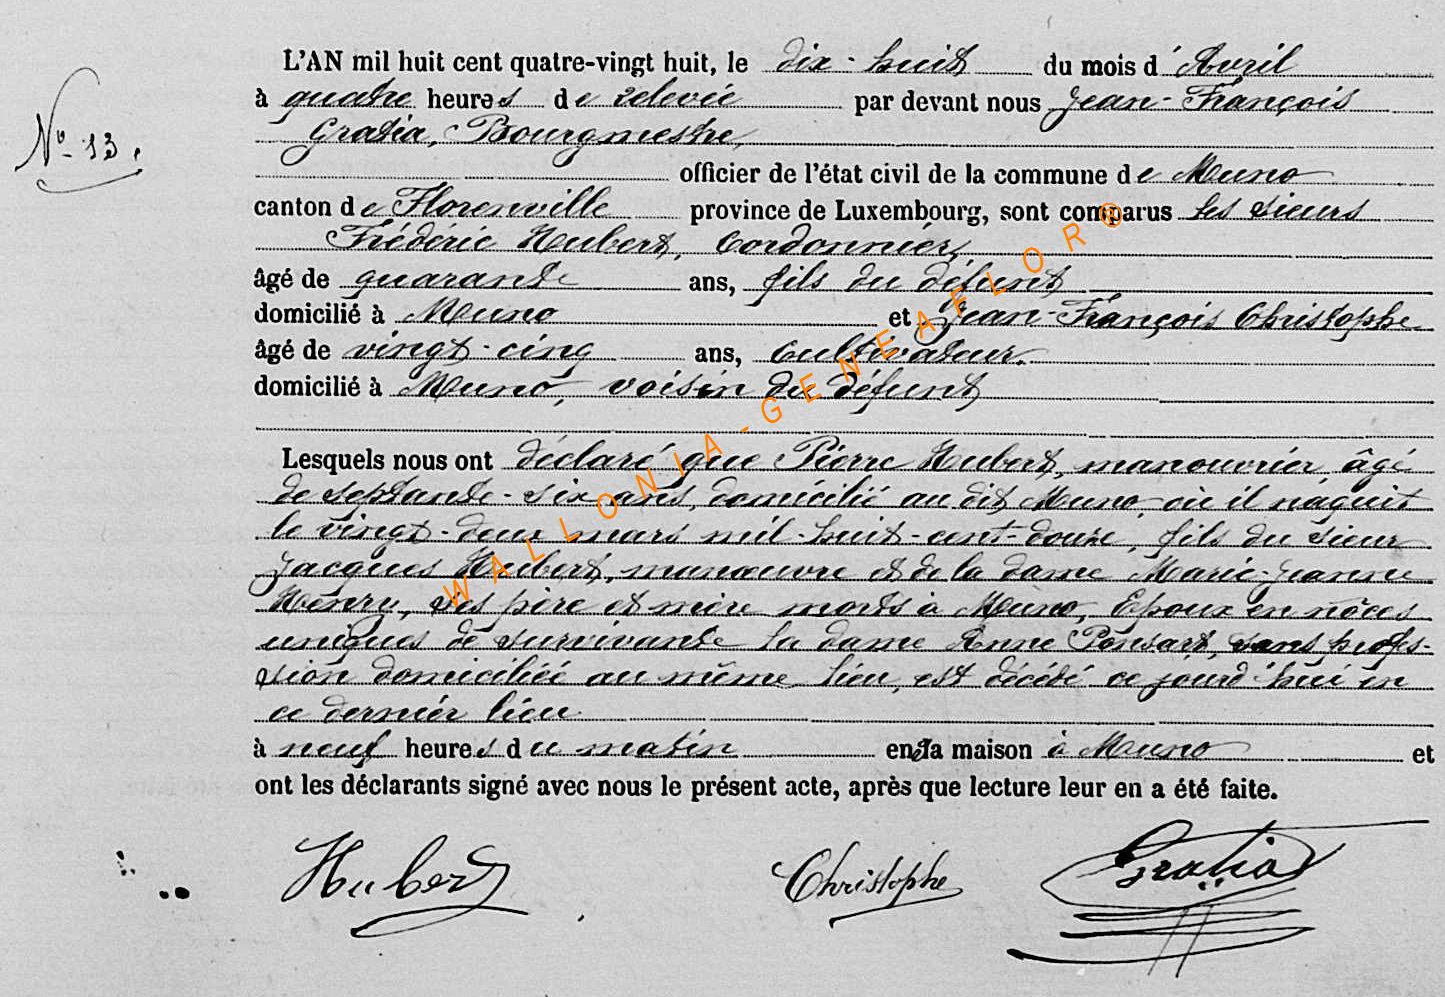 L'AN mil huit cent quatre-vingt huit, le dix-huit du mois d'Avril
Nº 13.
à quatre heures de relevée par devant nous Jean-François
Gratia, Bourgmestre,
officier de l'état civil de la commune de Muno
canton de Florenville province de Luxembourg, sont comparus les sieurs
Frédéric Hubert, Cordonnier,
âgé de quarante ans, fils du défunt
domicilié à Muno et Jean-François Christophe
âgé de vingt-cinq ans, Cultivateur.
domicilié à Muno, voisin du défunt
Lesquels nous ont déclaré que Pierre Hubert, manouvrier âgé
de septante-six ans, domicilié au dit Muno où il naquit
le vingt-deux mars mil-huit-cent-douze, fils du sieur
Jacques Hubert, manœuvre et de la dame Marie-Jeanne
Henry, ses père et mère morts à Muno, Epoux en nôces
uniques de survivante la dame Anne Ponsart, sans profes-
sion domiciliée au même lieu, est décédé ce jourd'hui en
ce dernier lieu
à neuf heures du matin en sa maison à Muno et
ont les déclarants signé avec nous le présent acte, après que lecture leur en a été faite.
Hubert Christophe Gratia
WALLONIA-GENEAFLOR®